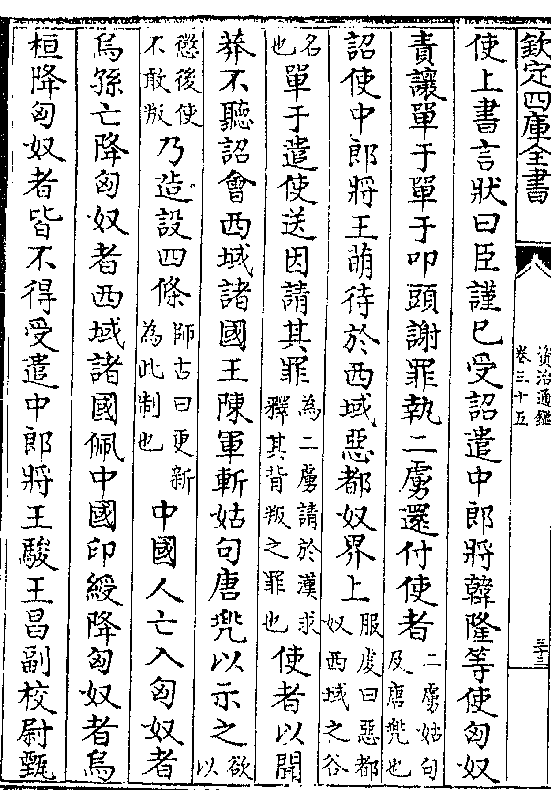 欽定四庫全書
資治通鑑
卷三十五
三十三
使上書言狀曰臣謹已受詔遣中郎將韓隆等使匈奴
責讓單于單于叩頭謝罪執二虜還付使者二虜姑句及唐兜也
詔使中郎將王萌待於西域惡都奴界上服虔曰惡都奴西域之谷
名也單于遣使送因請其罪為二虜請於漢求釋其背叛之罪也使者以聞
莽不聽詔會西域諸國王陳軍斬姑句唐兜以示之欲以
懲後使不敢叛乃造設四條師古曰更新為此制也中國人亡入匈奴者
烏孫亡降匈奴者西域諸國佩中國印綬降匈奴者烏
桓降匈奴者皆不得受遣中郎將王駿王昌副校尉甄